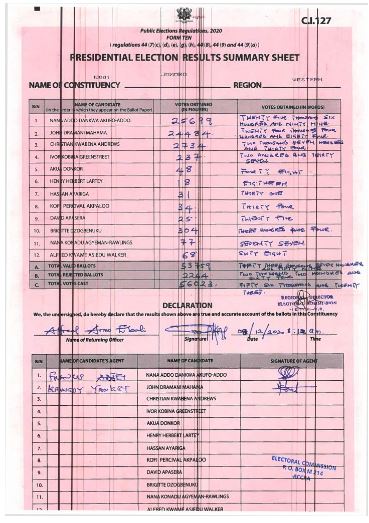 C.I.127
Public Elections Regulations, 2020
FORM TEN
PRESIDENTIAL ELECTION RESULTS SUMMARY SHEET
NAME OF CONSTITUENCY REGION WESTERN
S/N NAME OF CANDIDATE VOTES OBTAINED VOTES OBTAINED (IN WORDS)
(in the order in which they appear on the Ballot Paper) (IN FIGURES)
1. NANA ADDO DANKWA AKUFO-ADDO 25699 TWENTY FIVE THOUSAND SIX
HUNDRED AND NINETY NINE
2. JOHN DRAMANI MAHAMA 24484 TWENTY FOUR THOUSAND FOUR
HUNDRED AND EIGHTY FOUR
3. CHRISTIAN KWABENA ANDREWS 2734 TWO THOUSAND SEVEN HUNDRED
AND THIRTY FOUR
4. IVOR KOBINA GREENSTREET 237 TWO HUNDRED AND THIRTY
SEVEN
5. AKUA DONKOR 48 FORTY EIGHT
6. HENRY HERBERT LARTEY 18 EIGHTEEN
7. HASSAN AYARIGA 31 THIRTY ONE
8. KOFI PERCIVAL AKPALOO 34 THIRTY FOUR
9. DAVID APASERA 25 TWENTY FIVE
10. BRIGITTE DZOGBENUKU 304 THREE HUNDRED AND FOUR
11. NANA KONADU AGYEMAN-RAWLINGS 77 SEVENTY SEVEN
12. ALFRED KWAME ASIEDU WALKER 68 SIXTY EIGHT
A. TOTAL VALID BALLOTS 53759
B. TOTAL REJECTED BALLOTS 2264
C. TOTAL VOTES CAST 56023 FIFTY SIX THOUSAND AND TWENTY
THREE
DECLARATION
We, the undersigned, do hereby declare that the results shown above are true and accurate account of the ballots in this Constituency
Name of Returning Officer Signature Date Time
S/N NAME OF CANDIDATE'S AGENT NAME OF CANDIDATE SIGNATURE OF AGENT
1. FRANCIS NANA ADDO DANKWA AKUFO-ADDO
2. KENNEDY YANKEY JOHN DRAMANI MAHAMA
3. CHRISTIAN KWABENA ANDREWS
4. IVOR KOBINA GREENSTREET
5. AKUA DONKOR
6. HENRY HERBERT LARTEY
7. HASSAN AYARIGA
8. KOFI PERCIVAL AKPALOO
9. DAVID APASERA
10. BRIGITTE DZOGBENUKU
11. NANA KONADU AGYEMAN-RAWLINGS
ALFRED KWAME ASIEDU WALKER
ELECTORAL COMMISSION
P. O. BOX M 214
ACCRA